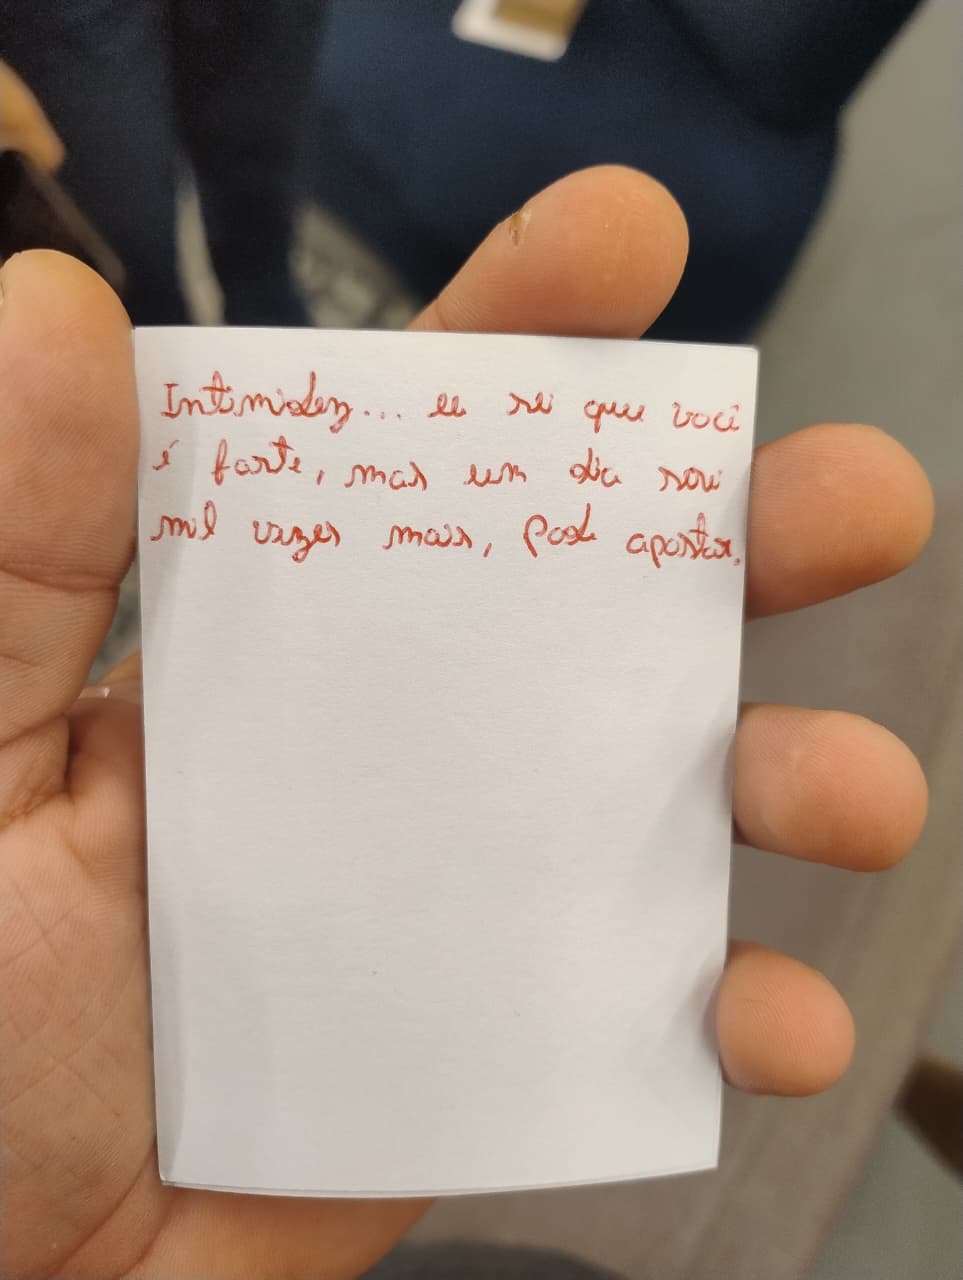 Intimidez... eu sei que você
é forte, mas um dia serei
mil vezes mais, pode apostar.